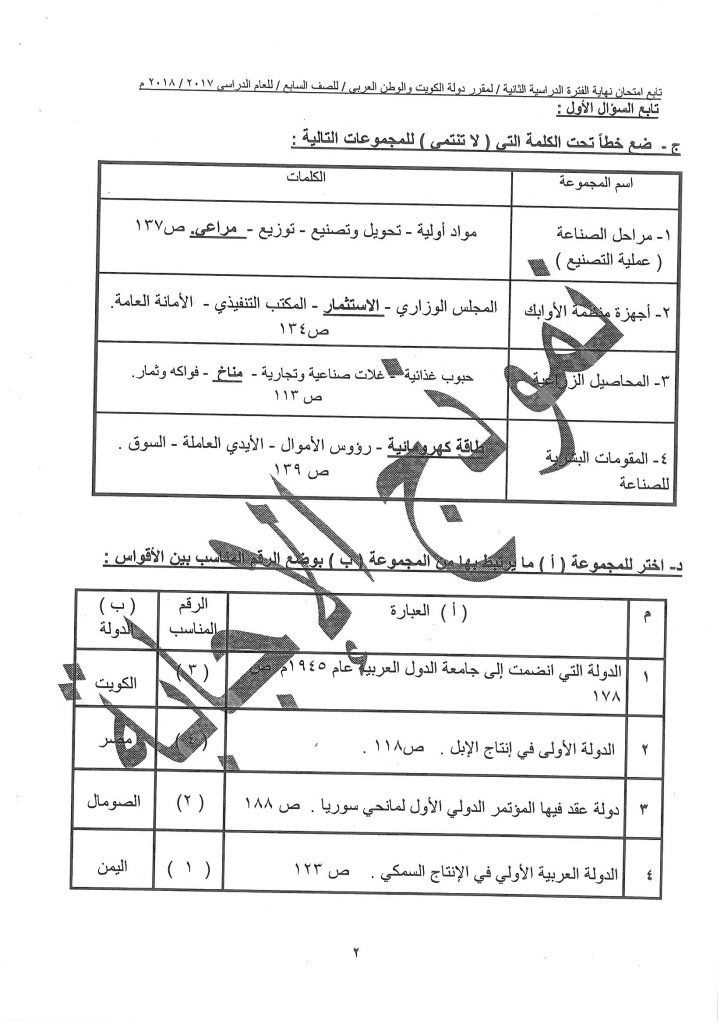 تابع امتحان نهاية الفترة الدراسية الثانية / لمقرر دولة الكويت والوطن العربي / للصف السابع / للعام الدراسي ٢٠١٧ / ٢٠١٨ م
تابع السؤال الأول :
ج - ضع خطاً تحت الكلمة التي ( لا تنتمي ) للمجموعات التالية :
اسم المجموعة
الكلمات
١- مراحل الصناعة
( عملية التصنيع )
مواد أولية - تحويل وتصنيع - توزيع - مراعي. ص١٣٧
٢- أجهزة منظمة الأوابك
المجلس الوزاري - الاستثمار - المكتب التنفيذي - الأمانة العامة.
ص١٣٤
٣- المحاصيل الزراعية
حبوب غذائية - غلات صناعية وتجارية - مناخ - فواكه وثمار.
ص ١١٣
٤- المقومات البشرية
للصناعة
طاقة كهرومائية - رؤوس الأموال - الأيدي العاملة - السوق .
ص ١٣٩
د- اختر للمجموعة ( أ ) ما يرتبط بها من المجموعة ( ب ) بوضع الرقم المناسب بين الأقواس :
م
( أ ) العبارة
الرقم
المناسب
( ب )
الدولة
١
الدولة التي انضمت إلى جامعة الدول العربية عام ١٩٤٥م ص
١٧٨
( ٣ )
الكويت
٢
الدولة الأولى في إنتاج الإبل . ص١١٨ .
( ٤ )
مصر
٣
دولة عقد فيها المؤتمر الدولي الأول لمانحي سوريا . ص ١٨٨
( ٢ )
الصومال
٤
الدولة العربية الأولي في الإنتاج السمكي . ص ١٢٣
( ١ )
اليمن
نموذج الإجابة
٢